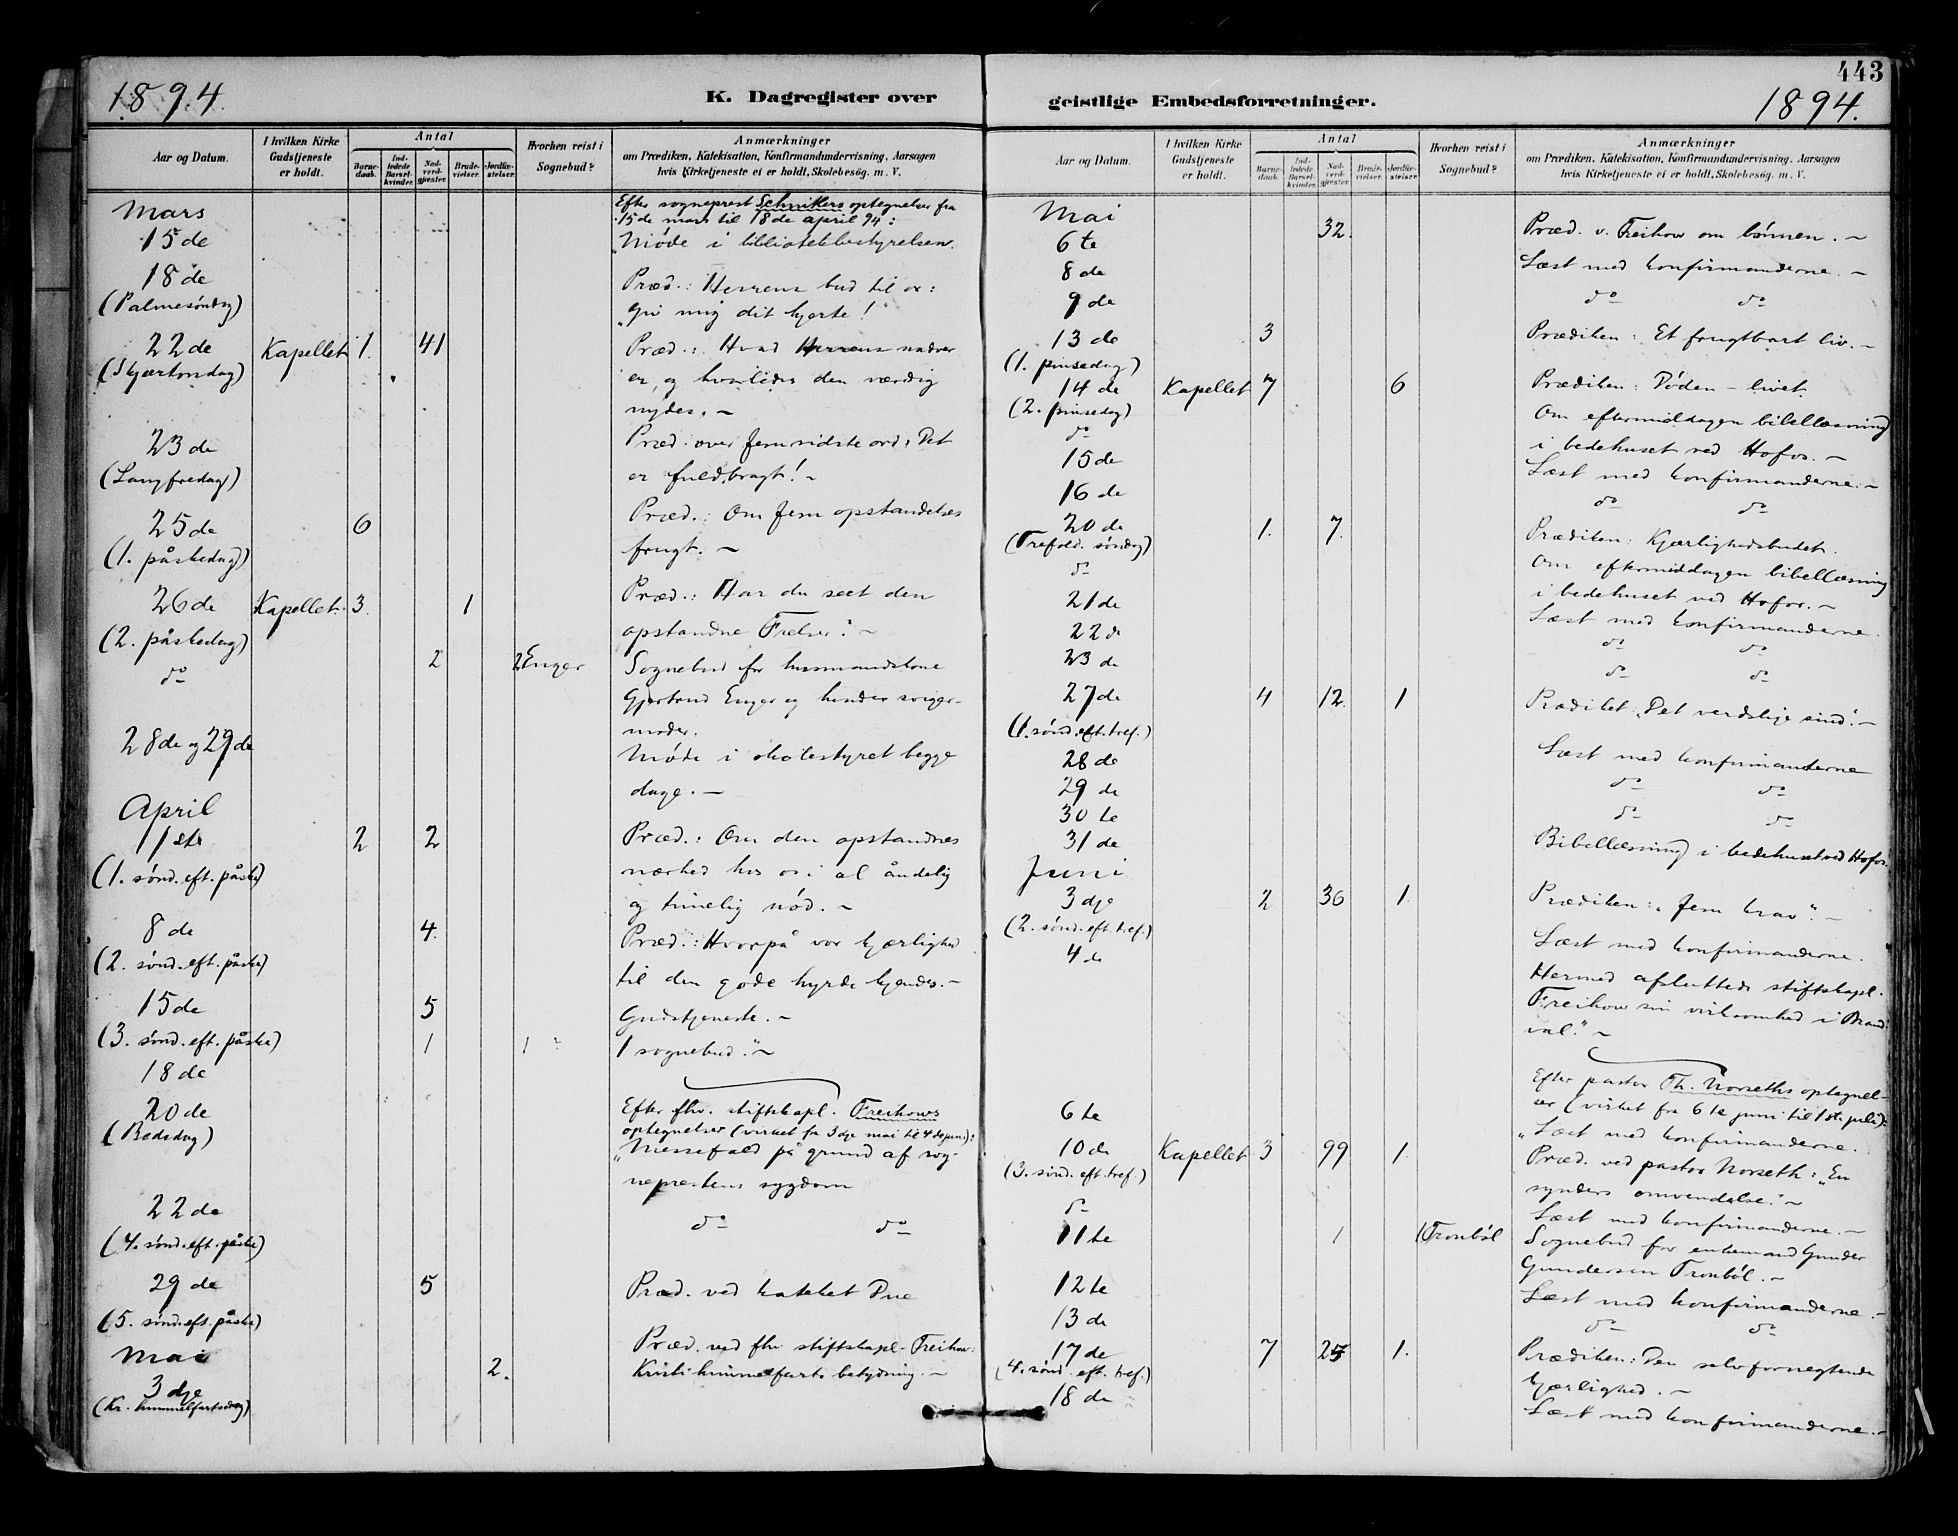 1894.
K. Dagregister over
Aar og Datum.
I hvilken Kirke Gudstjeneste er holdt.
Antal
Barne-daab.
Ind-ledede Barsel-kvinder.
Nad-verd-gjester.
Brude-vielser.
Jordfæ-stelser.
Hvorhen reist i Sognebud?
Anmærkninger
om Prædiken, Katekisation, Konfirmandundervisning, Aarsagen
hvis Kirketjeneste ei er holdt, Skolebesøg. m. V.
Efter sogneprest Schnitlers optegnelser fra
Mars 15de mars til 18de april 94:
15de „Møde i bibliotekbestyrelsen.
18de Præd.: Herrens bud til os:
(Palmesøndag) „Giv mig dit hjerte!
22de Kapellet 1. 41 Præd.: Hvad Herrens nadver
(Skjærtorsdag) er, og hvorledes den værdig
nydes. —
23de Præd. over Jesu sidste ord: Det
(Langfredag) er fuldbragt! —
25de 6 Præd.: Om Jesu opstandelses
(1. påskedag) frugt. —
26de Kapellet 3. 1 Præd.: Har du seet den
(2. påskedag) opstandne Frelser? —
do 2 2 Enger Sognebud for husmandskone
Gjertrud Enger og hendes sviger-
moder.
28de og 29de Møde i skolestyret begge
dage. —
April
1ste 2 2 Præd.: Om den opstandnes
(1. sønd. eft. påske) nærhed hos os i al åndelig
og timelig nød. —
8de 4. Præd.: Hvorpå vor kjærlighed
(2. sønd. eft. påske) til den gode hyrde kjendes. —
15de 5 Gudstjeneste. —
(3. sønd. eft. påske) 1 1 1 sognebud." —
18de
20de Efter fhv. stiftskapl. Freihows
(Bededag) optegnelser (virket fra 3dje mai til 4de juni):
„Messefald på grund af sog-
neprestens sygdom
22de do do
(4. sønd. eft. påske)
29de 5 Præd. ved kateket Due
(5. sønd. eft. påske)
Mai Præd. ved fhv stiftskapl. Freihow:
3dje 2. Kristi himmelfarts betydning. —
(Kr. himmelfartsdag)
443
1894.
geistlige Embedsforretninger.
Aar og Datum.
I hvilken Kirke Gudstjeneste er holdt.
Antal
Barne-daab.
Ind-ledede Barsel-kvinder.
Nad-verd-gjester.
Brude-vielser.
Jordfæ-stelser.
Hvorhen reist i Sognebud?
Anmærkninger
om Prædiken, Katekisation, Konfirmandundervisning, Aarsagen
hvis Kirketjeneste ei er holdt, Skolebesøg. m. V.
Mai
6te 32. Præd. v. Freihow om bønnen. —
8de Læst med konfirmanderne. —
9de do do
13de 3 Prædiken: Et frugtbart liv. —
(1. pinsedag)
14de Kapellet 7 6 Prædiken: Døden – livet.
(2. pinsedag)
do Om eftermiddagen bibellæsning
i bedehuset ved Hofos. —
15de Læst med konfirmanderne. —
16de do do
20de 1. 7. Prædiken: Kjærlighedsbudet.
(Trefold. søndag)
do Om eftermiddagen bibellæsning
i bedehuset ved Hofos. —
21de Læst med konfirmanderne.
22de do do
23de do do
27de 4 12. 1 Prædiket: „Det verdslige sind". —
(1. sønd. eft. tref.)
28de Læst med konfirmanderne
29de do do
30te do do
31de Bibellæsning i bedehuset ved Hofos.
Juni
3dje 2 36 1 Prædiken: „Jesu krav". —
(2. sønd. eft. tref.)
4de Læst med konfirmanderne.
Hermed afsluttede stiftskapl.
Freihow sin virksomhed i Brand-
val." —
Efter pastor Th. Norseths optegnel-
6te ser (virket fra 6te juni til 1ste juli):
„Læst med konfirmanderne.
10de Kapellet 3 99 1 Præd. ved pastor Norseth: „En
(3. sønd. eft. tref.) synders omvendelse." —
do Læst med konfirmanderne. —
11te 1 1 Tronbøl Sognebud for enkemand Gunder
Gundersen Tronbøl. —
12te Læst med konfirmanderne. —
13de do do
17de 7 25 1. Prædiken: Den selvfornegtende
(4. sønd. eft. tref.) kjærlighed. —
18de Læst med konfirmanderne. —